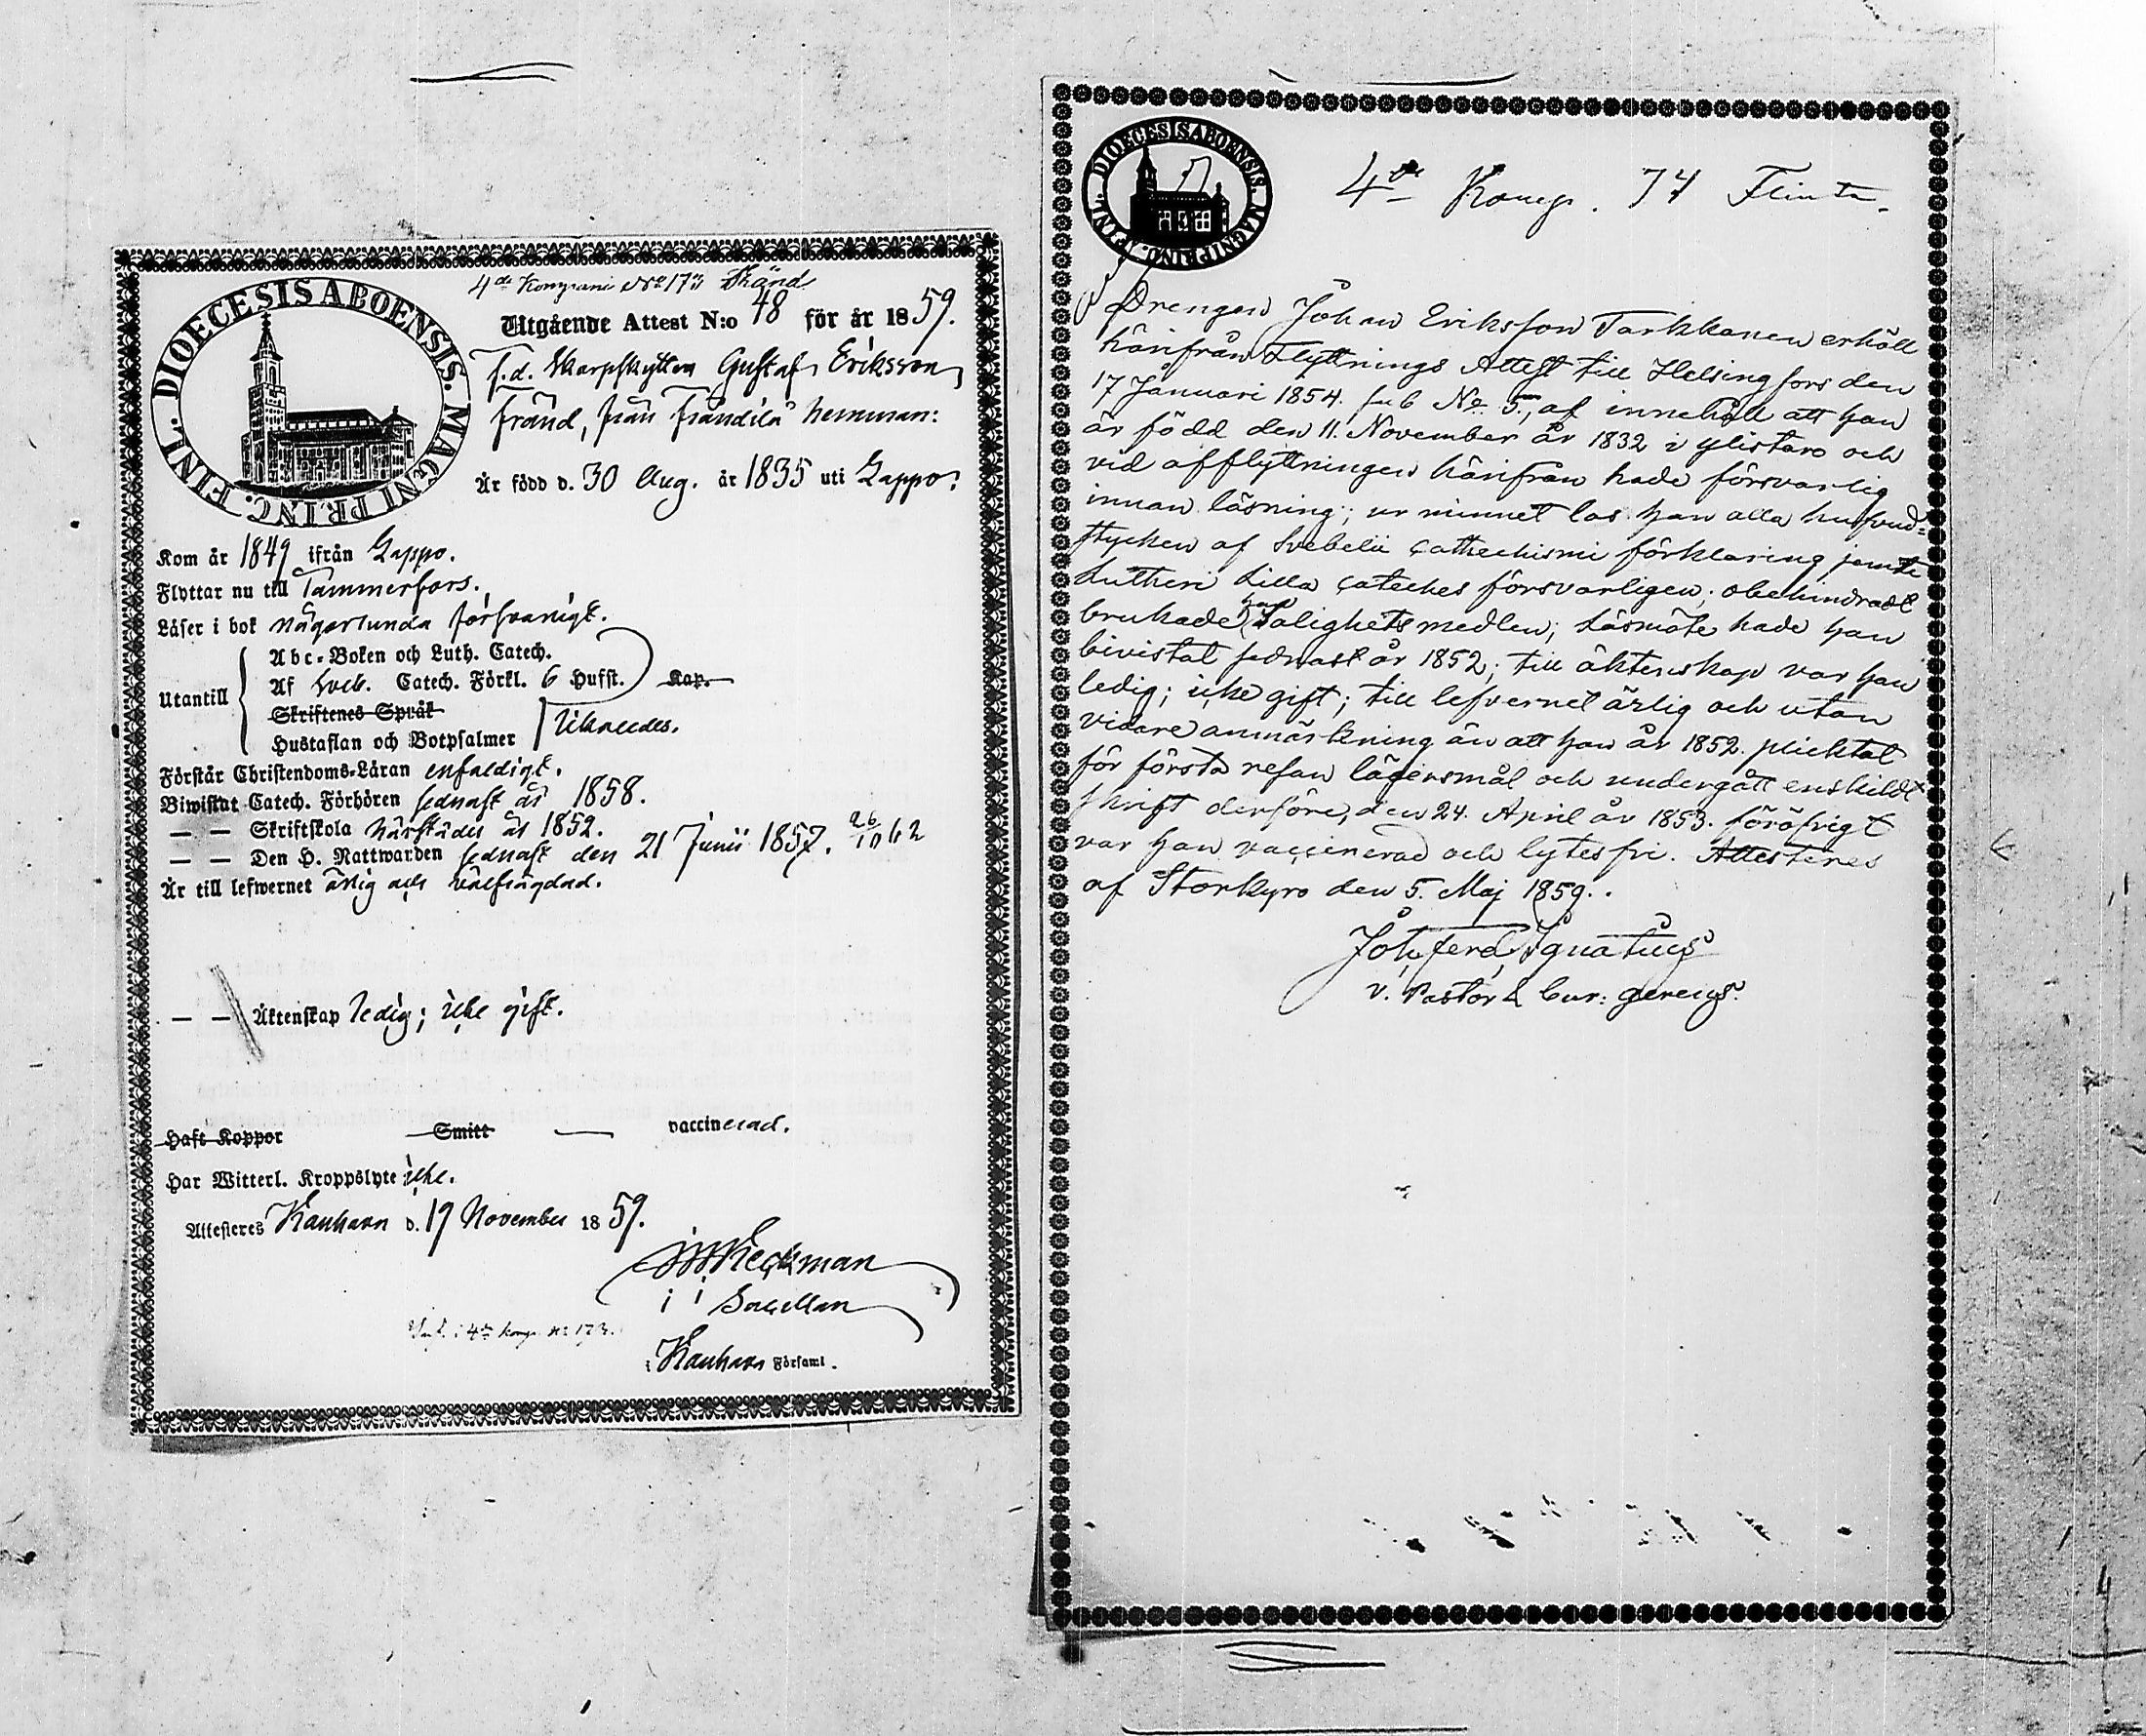 DIOECESIS ABOENSIS. MAGNI PRINC. FINL.
4de Kompani No 173 Fränd
Utgående Attest N:o 48 för år 1859.
F.d. Skarpskytten Gustaf Eriksson
Fränd, från Frändilä hemman:
Är född d. 30 Aug. år 1835 uti Lappo:
Kom år 1849 ifrån Lappo.
Flyttar nu till Tammerfors.
Läser i bok någorlunda försvarligt.
Utantill
Abc-Boken och Luth. Catech.
Af Sveb. Catech. Förkl. 6 Hufst. Kap.
Skriftenes Språk
Hustaflan och Botpsalmer
likaledes.
Förstår Christendoms-Läran enfaldigt.
Biwistat Catech. Förhören sednast år 1858.
— — Skriftskola härstädes år 1852.
— — Den H. Nattwarden sednast den 21 Junii 1857. 26/10 62
Är till lefwernet ärlig och välfrägdad.
— — Äktenskap ledig; icke gift.
Haft Koppor Smitt — vaccinerad.
Har Witterl. Kroppslyte icke.
Attesteres Kauhava d. 19 November 1859.
Heckman
Sacellan
i Kauhava Församl.
DIOECESIS ABOENSIS. MAGNI PRINC. FINL.
4de Komp. 74 Flinta.
Drengen Johan Eriksson Tarkkanen erhöll
härifrån Flyttnings Attest till Helsingfors den
17 Januari 1854. sub No. 5, af innehåll att han
är född den 11. November år 1832 i Ylistaro och
vid afflyttningen härifrån hade försvarlig
innan läsning; ur minnet las han alla hufvud-
stycken af Svebelii Cathechismi förklaring jemte
Lutheri Lilla Cateches försvarligen; obehindradt
brukade han Salighets medlen; Läsmöte hade han
bivistat sednast år 1852; till äktenskap var han
ledig; icke gift; till lefvernet ärlig och utan
vidare anmärkning än att han år 1852. pliktat
för första resan lägersmål och undergått enskildt
skrift derföre, den 24. April år 1853. föröfrigt
var han vaccinerad och lytesfri. Attesteres
af Storkyro den 5. Maj 1859.
Joh. Ferd. Ignatius
v. Pastor & Cur: gerens.